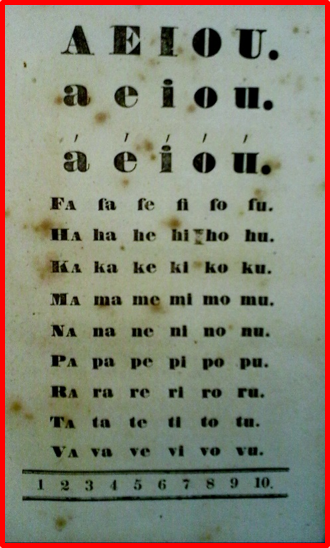 A E I O U.
a e i o u.
á é í ó ú.
FA fa fe fi fo fu.
HA ha he hi ho hu.
KA ka ke ki ko ku.
MA ma me mi mo mu.
NA na ne ni no nu.
PA pa pe pi po pu.
RA ra re ri ro ru.
TA ta te ti to tu.
VA va ve vi vo vu.
1 2 3 4 5 6 7 8 9 10.